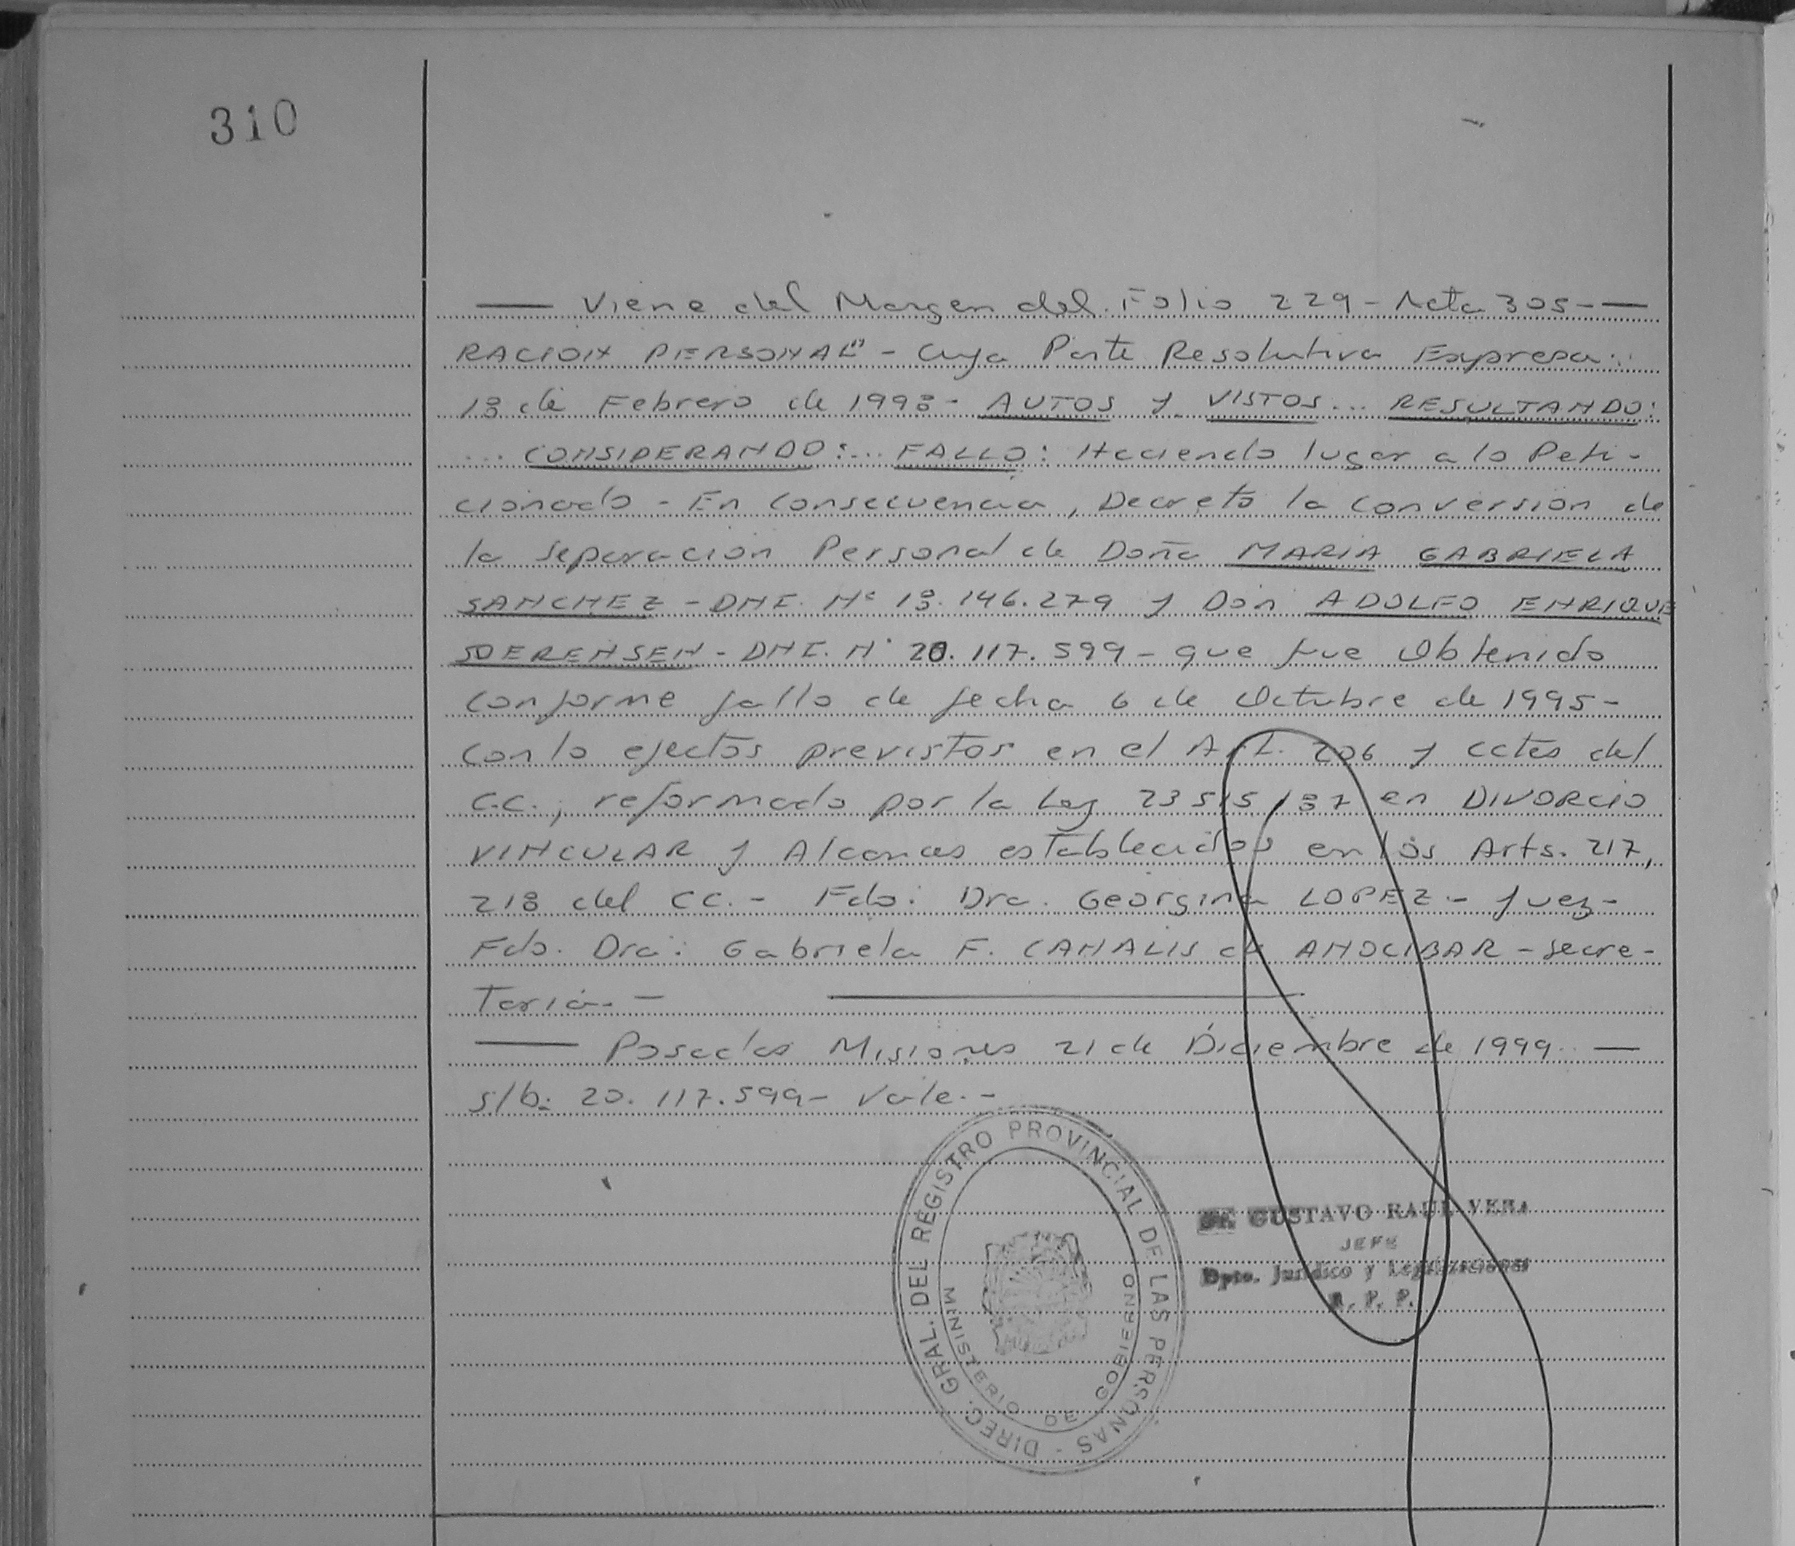 310
— Viene del Margen del Folio 229 - Acta 305 - —
RACION PERSONAL" - Cuya Parte Resolutiva Expresa:
18 de Febrero de 1998 - AUTOS y VISTOS... RESULTANDO:
... CONSIDERANDO:... FALLO: Haciendo lugar a lo Peti-
cionado - En Consecuencia, Decreto la Conversion de
la Separacion Personal de Doña MARIA GABRIELA
SANCHEZ - DNI. Nº 18.146.279 y Don ADOLFO ENRIQUE
SOERENSEN - DNI. Nº 20.117.599 - que fue Obtenido
Conforme fallo de fecha 6 de Octubre de 1995 -
Con lo efectos previstos en el Art. 206 y cctes del
C.C., reformado por la Ley 23515/87 en DIVORCIO
VINCULAR y Alcances establecidos en los Arts. 217,
218 del CC. - Fdo: Dra. Georgina LOPEZ - Juez -
Fdo. Dra: Gabriela F. CANALIS de ANOCIBAR - Secre-
taria. —
— Posadas Misiones 21 de Diciembre de 1999. —
s/b: 20.117.599 - Vale. -
DIREC. GRAL. DEL REGISTRO PROVINCIAL DE LAS PERSONAS -
MINISTERIO DE GOBIERNO
Dr. GUSTAVO RAUL VERA
JEFE
Dpto. Jurídico y Legalizaciones
R. P. P.